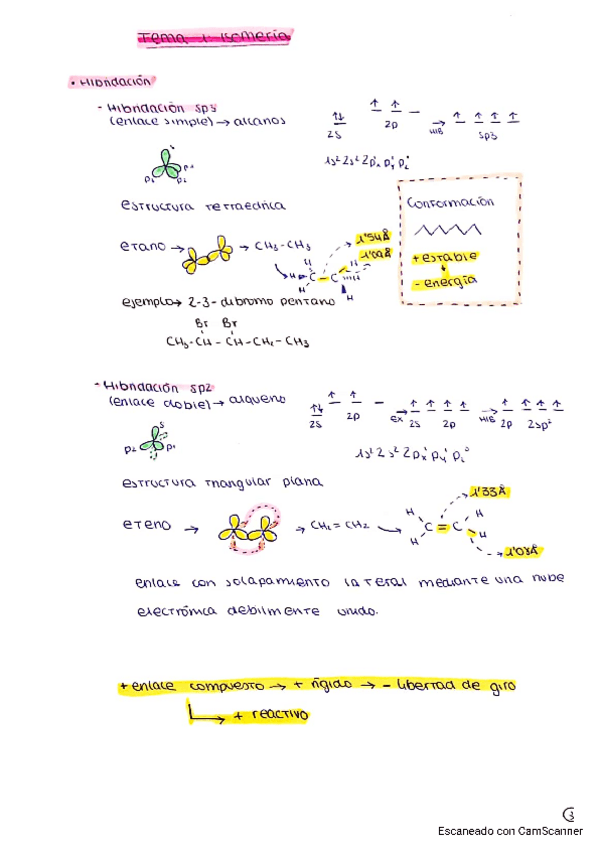 Tema 1 Isomería
• Hibridación
- Hibridación sp3
(enlace simple) → alcanos
2s 2p HIB sp3
1s² 2s² 2px¹ py¹ pz⁰
estructura tetraedrica
Conformación
+ estable
- energía
etano → → CH3-CH3
1'54Å
1'09Å
H C C H
H H
ejemplo → 2-3-dibromo pentano
Br Br
CH3-CH-CH-CH2-CH3
- Hibridación sp2
(enlace doble) → alqueno
2s 2p ex 2s 2p HIB 2p 2sp²
1s² 2s² 2px¹ py¹ pz⁰
estructura triangular plana
1'33Å
eteno → → CH2=CH2
H H
C = C
H H
enlace con solapamiento lateral mediante una nube
electrónica debilmente unido.
+ enlace compuesto → + rígido → - libertad de giro
+ reactivo
Escaneado con CamScanner